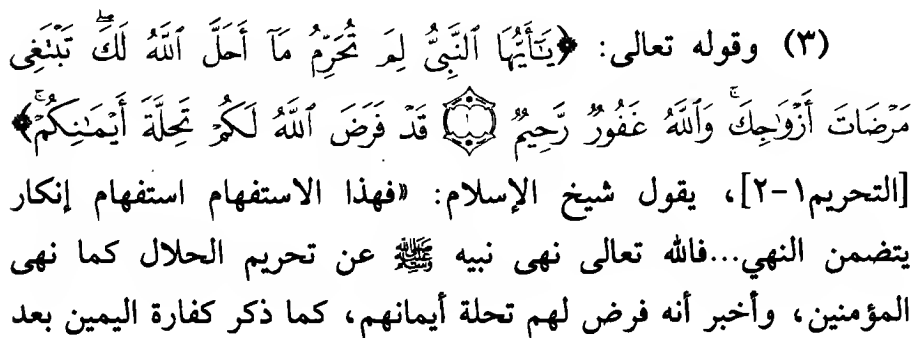 (٣) وقوله تعالى: ﴿يَـٰٓأَيُّهَا ٱلنَّبِىُّ لِمَ تُحَرِّمُ مَآ أَحَلَّ ٱللَّهُ لَكَ ۖ تَبْتَغِى
مَرْضَاتَ أَزْوَٰجِكَ ۚ وَٱللَّهُ غَفُورٌ رَّحِيمٌ ۝١ قَدْ فَرَضَ ٱللَّهُ لَكُمْ تَحِلَّةَ أَيْمَـٰنِكُمْ ۚ﴾
[التحريم١-٢]، يقول شيخ الإسلام: «فهذا الاستفهام استفهام إنكار
يتضمن النهي...فالله تعالى نهى نبيه ﷺ عن تحريم الحلال كما نهى
المؤمنين، وأخبر أنه فرض لهم تحلة أيمانهم، كما ذكر كفارة اليمين بعد